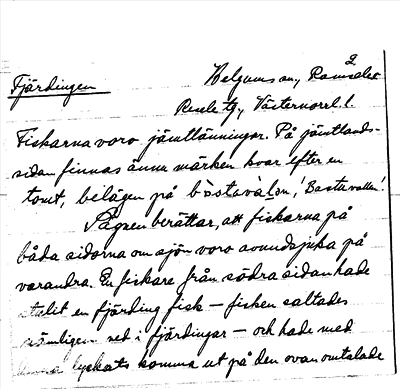 2
Fjärdingen
Helgums sn, Ramsele
Resele tg, Västernorrl. l.
Fiskarna voro jämtlänningar. På jämtlands-
sidan finnas ännu märken kvar efter en
tomt, belägen på bàstavàlen, 'Bastuvallen'.
Sägnen berättar, att fiskarna på
båda sidorna om sjön voro avundsjuka på
varandra. En fiskare från södra sidan hade
stulit en fjärding fisk – fisken saltades
nämligen ned i fjärdingar – och hade med
denna lyckats komma ut på den ovan omtalade